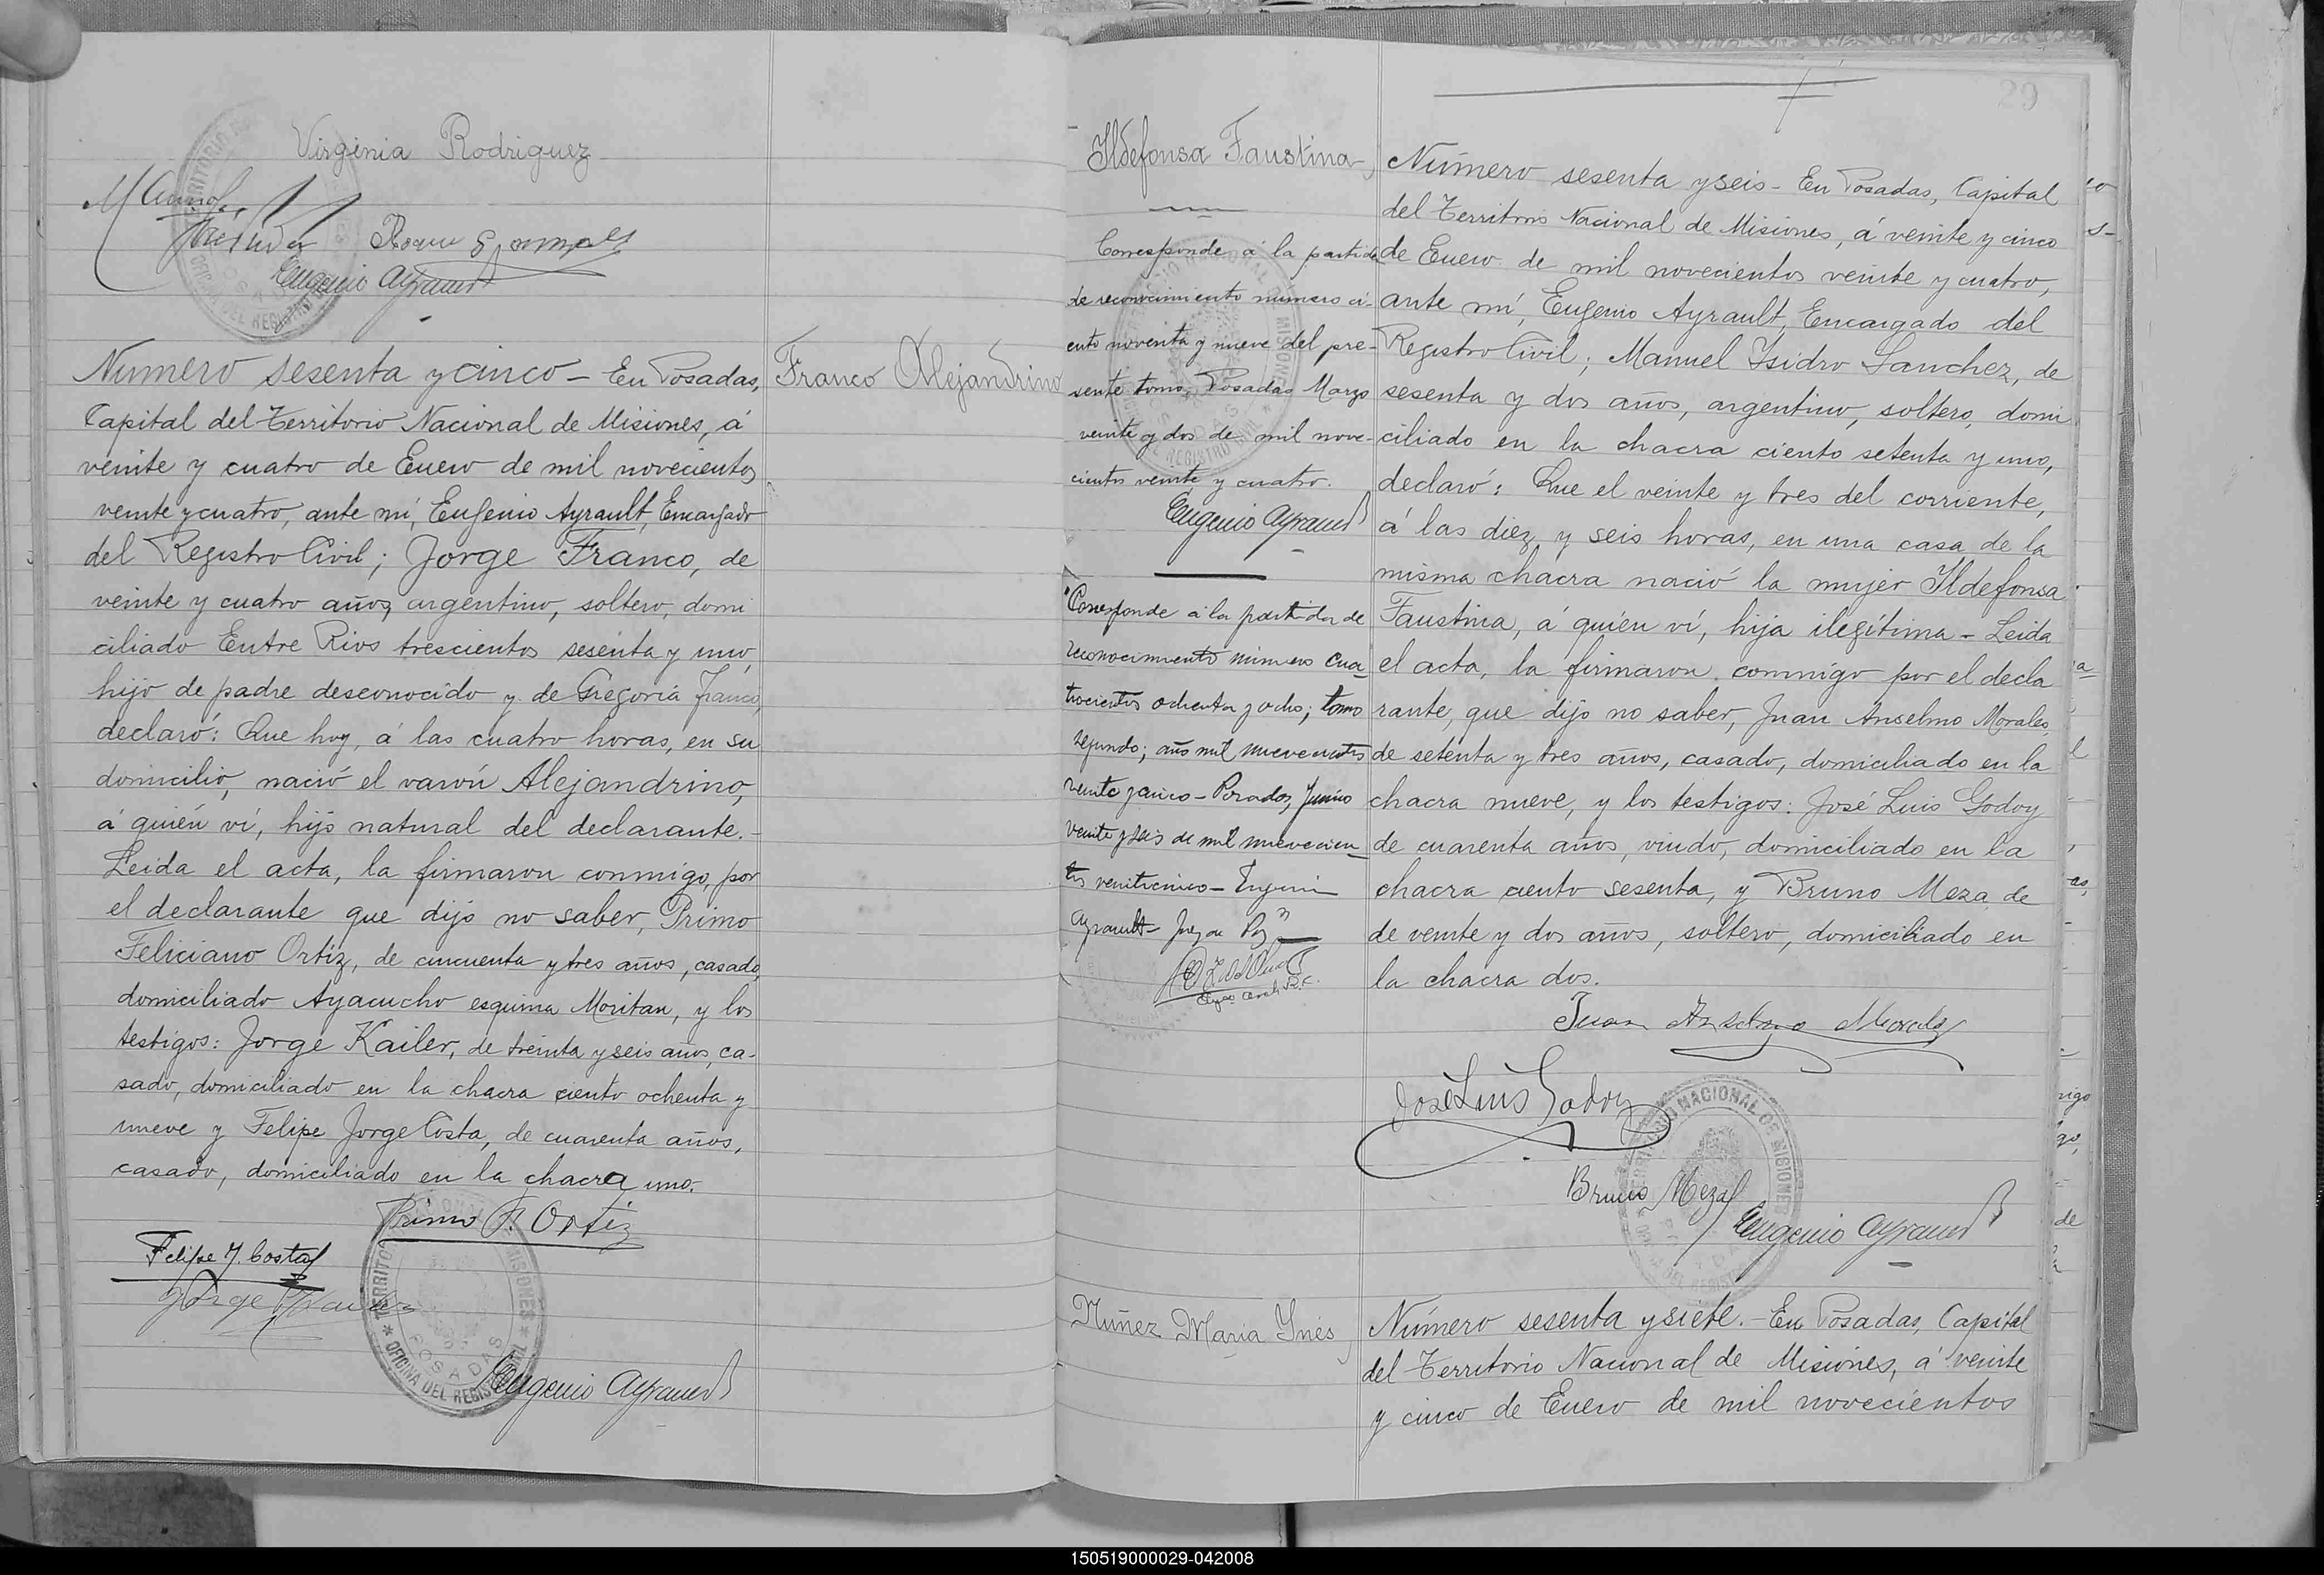 Virginia Rodriguez
Eugenio Ayrault
Número sesenta y cinco - En Posadas,
Capital del Territorio Nacional de Misiones, á
veinte y cuatro de Enero de mil novecientos
veinte y cuatro, ante mí, Eugenio Ayrault, Encargado
del Registro Civil; Jorge Franco, de
veinte y cuatro años, argentino, soltero, domi
ciliado Entre Rios trescientos sesenta y uno,
hijo de padre desconocido y de Gregoria Franco,
declaró: Que hoy, á las cuatro horas, en su
domicilio, nació el varón Alejandrino,
á quién ví, hijo natural del declarante.-
Leida el acta, la firmaron conmigo, por
el declarante que dijo no saber, Primo
Feliciano Ortiz, de cincuenta y tres años, casado,
domiciliado Ayacucho esquina Moritan, y los
testigos: Jorge Kailer, de treinta y seis años, ca-
sado, domiciliado en la chacra ciento ochenta y
nueve y Felipe Jorge Costa, de cuarenta años,
casado, domiciliado en la chacra uno.
Primo F. Ortiz
Felipe J. Costa
Jorge
Eugenio Ayrault
TERRITORIO MISIONES
POSADAS
OFICINA DEL REGISTRO CIVIL
Franco Alejandrino
29
Ildefonsa Faustina
Corresponde á la partida
de reconocimiento numero ci-
ento noventa y nueve del pre-
sente tomo, Posadas Marzo
veinte y dos de mil nove-
cientos veinte y cuatro.
Eugenio Ayrault
"Corresponde a la partida de
reconocimiento número cua
trocientos ochenta y ocho; tomo
segundo; año mil nuevecientos
veinte y cinco - Posadas, Junio
veinte y seis de mil nuevecien
tos veinticinco - Eugenio
Ayrault - Juez de Paz"
Número sesenta y seis - En Posadas, Capital
del Territorio Nacional de Misiones, á veinte y cinco
de Enero de mil novecientos veinte y cuatro,
ante mí, Eugenio Ayrault, Encargado del
Registro Civil; Manuel Isidro Sanchez, de
sesenta y dos años, argentino, soltero, domi
ciliado en la chacra ciento setenta y uno,
declaró: Que el veinte y tres del corriente,
á las diez y seis horas, en una casa de la
misma chacra nació la mujer Ildefonsa
Faustina, á quién ví, hija ilegítima - Leida
el acta, la firmaron conmigo por el decla
rante, que dijo no saber, Juan Anselmo Morales,
de setenta y tres años, casado, domiciliado en la
chacra nueve, y los testigos: José Luis Godoy
de cuarenta años, viudo, domiciliado en la
chacra ciento sesenta, y Bruno Meza, de
de veinte y dos años, soltero, domiciliado en
la chacra dos.
Juan Anselmo Morales
José Luis Godoy
Bruno Meza
Eugenio Ayrault
TERRITORIO NACIONAL DE MISIONES
Nuñez María Ynés
Número sesenta y siete. - En Posadas, Capital
del Territorio Nacional de Misiones, á veinte
y cinco de Enero de mil novecientos
150519000029-042008